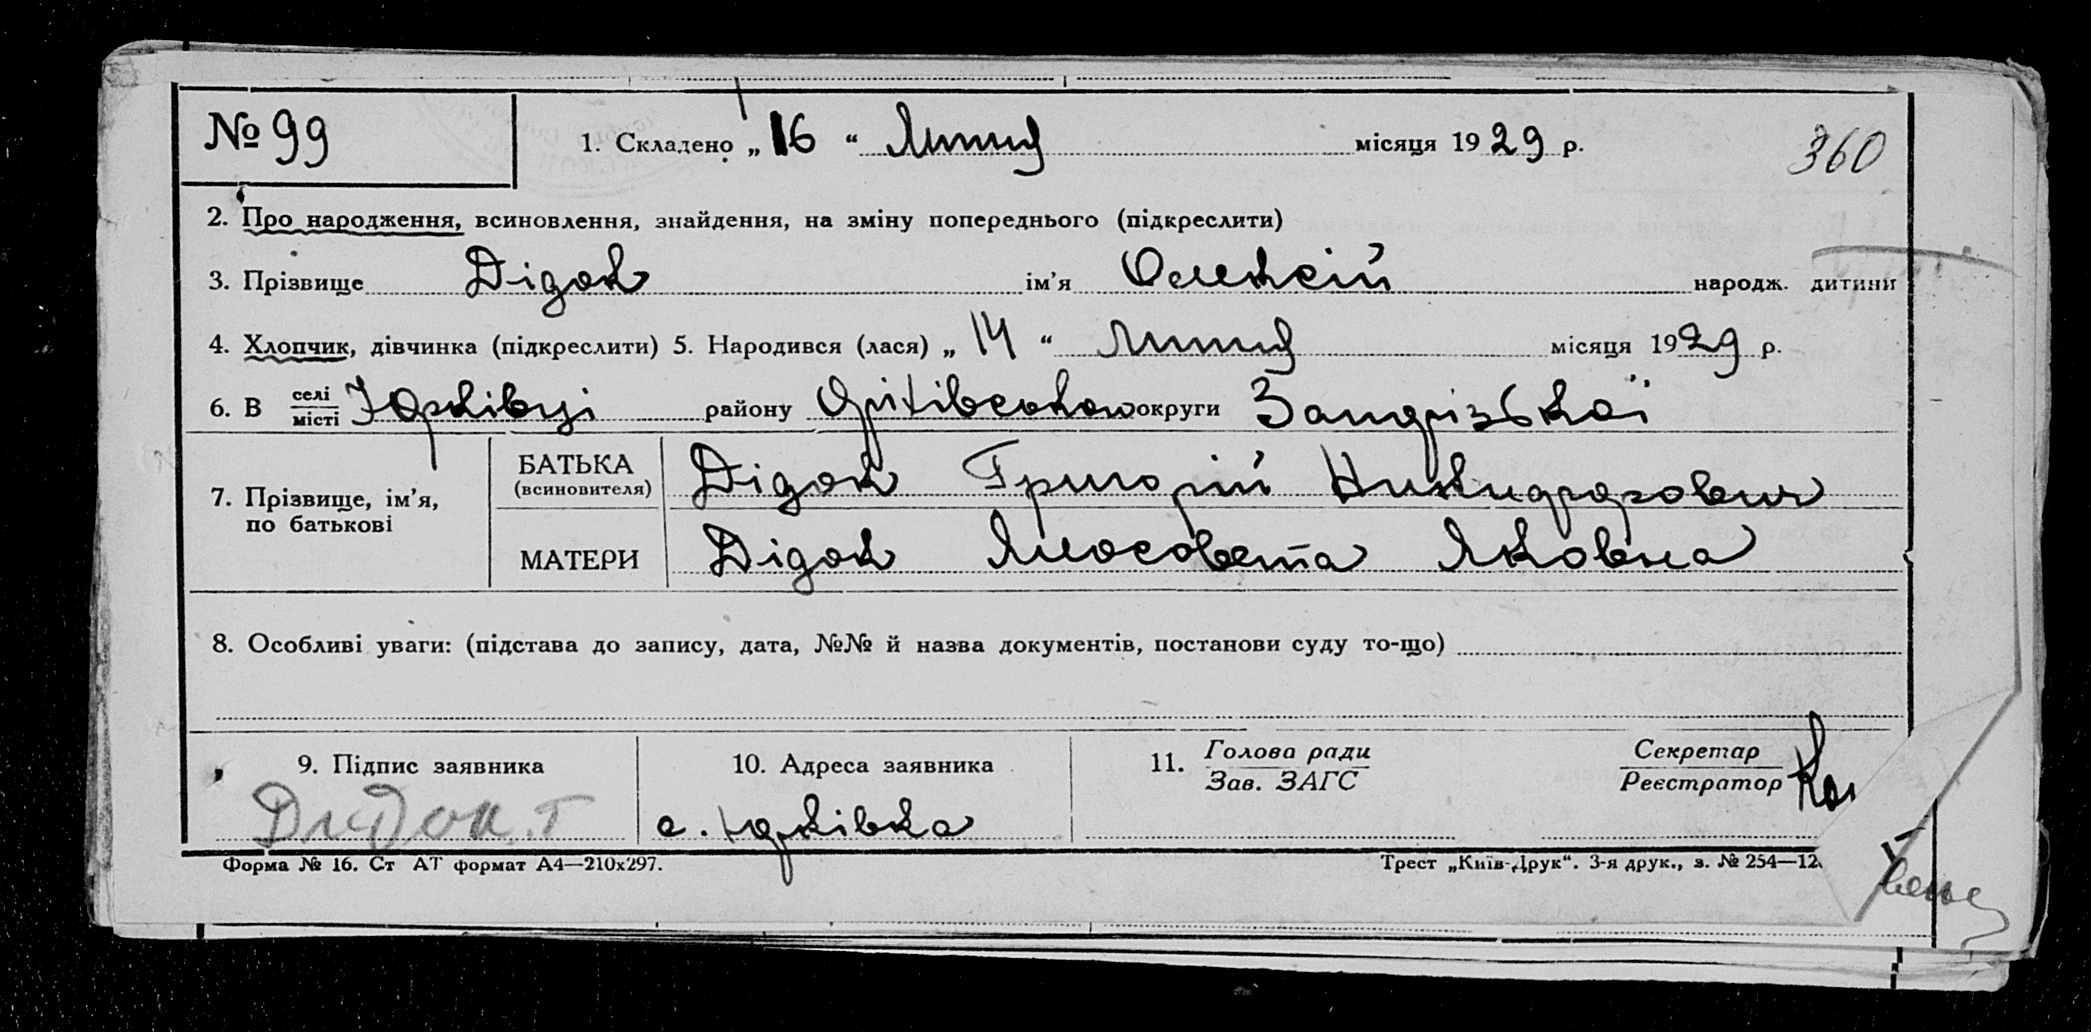 № 99 1. Складено „ 16 “ Липня місяця 1929 р. 360
2. Про народження, всиновлення, знайдення, на зміну попереднього (підкреслити)
3. Прізвище Дідок ім’я Олексій народж. дитини
4. Хлопчик, дівчинка (підкреслити) 5. Народився (лася) „ 14 “ Липня місяця 1929 р.
6. В селі/місті Юрківці району Оріхівського округи Запорізької
7. Прізвище, ім’я, по батькові
БАТЬКА (всиновителя) Дідок Григорій Никифорович
МАТЕРИ Дідок Лисовета Яковна
8. Особливі уваги: (підстава до запису, дата, №№ й назва документів, постанови суду то-що)
9. Підпис заявника 10. Адреса заявника 11. Голова ради/Зав. ЗАГС Секретар/Реєстратор
Дидок. Г с. Юрківка
Форма № 16. Ст АТ формат А4—210х297. Трест „Київ-Друк“. 3-я друк., з. № 254—12